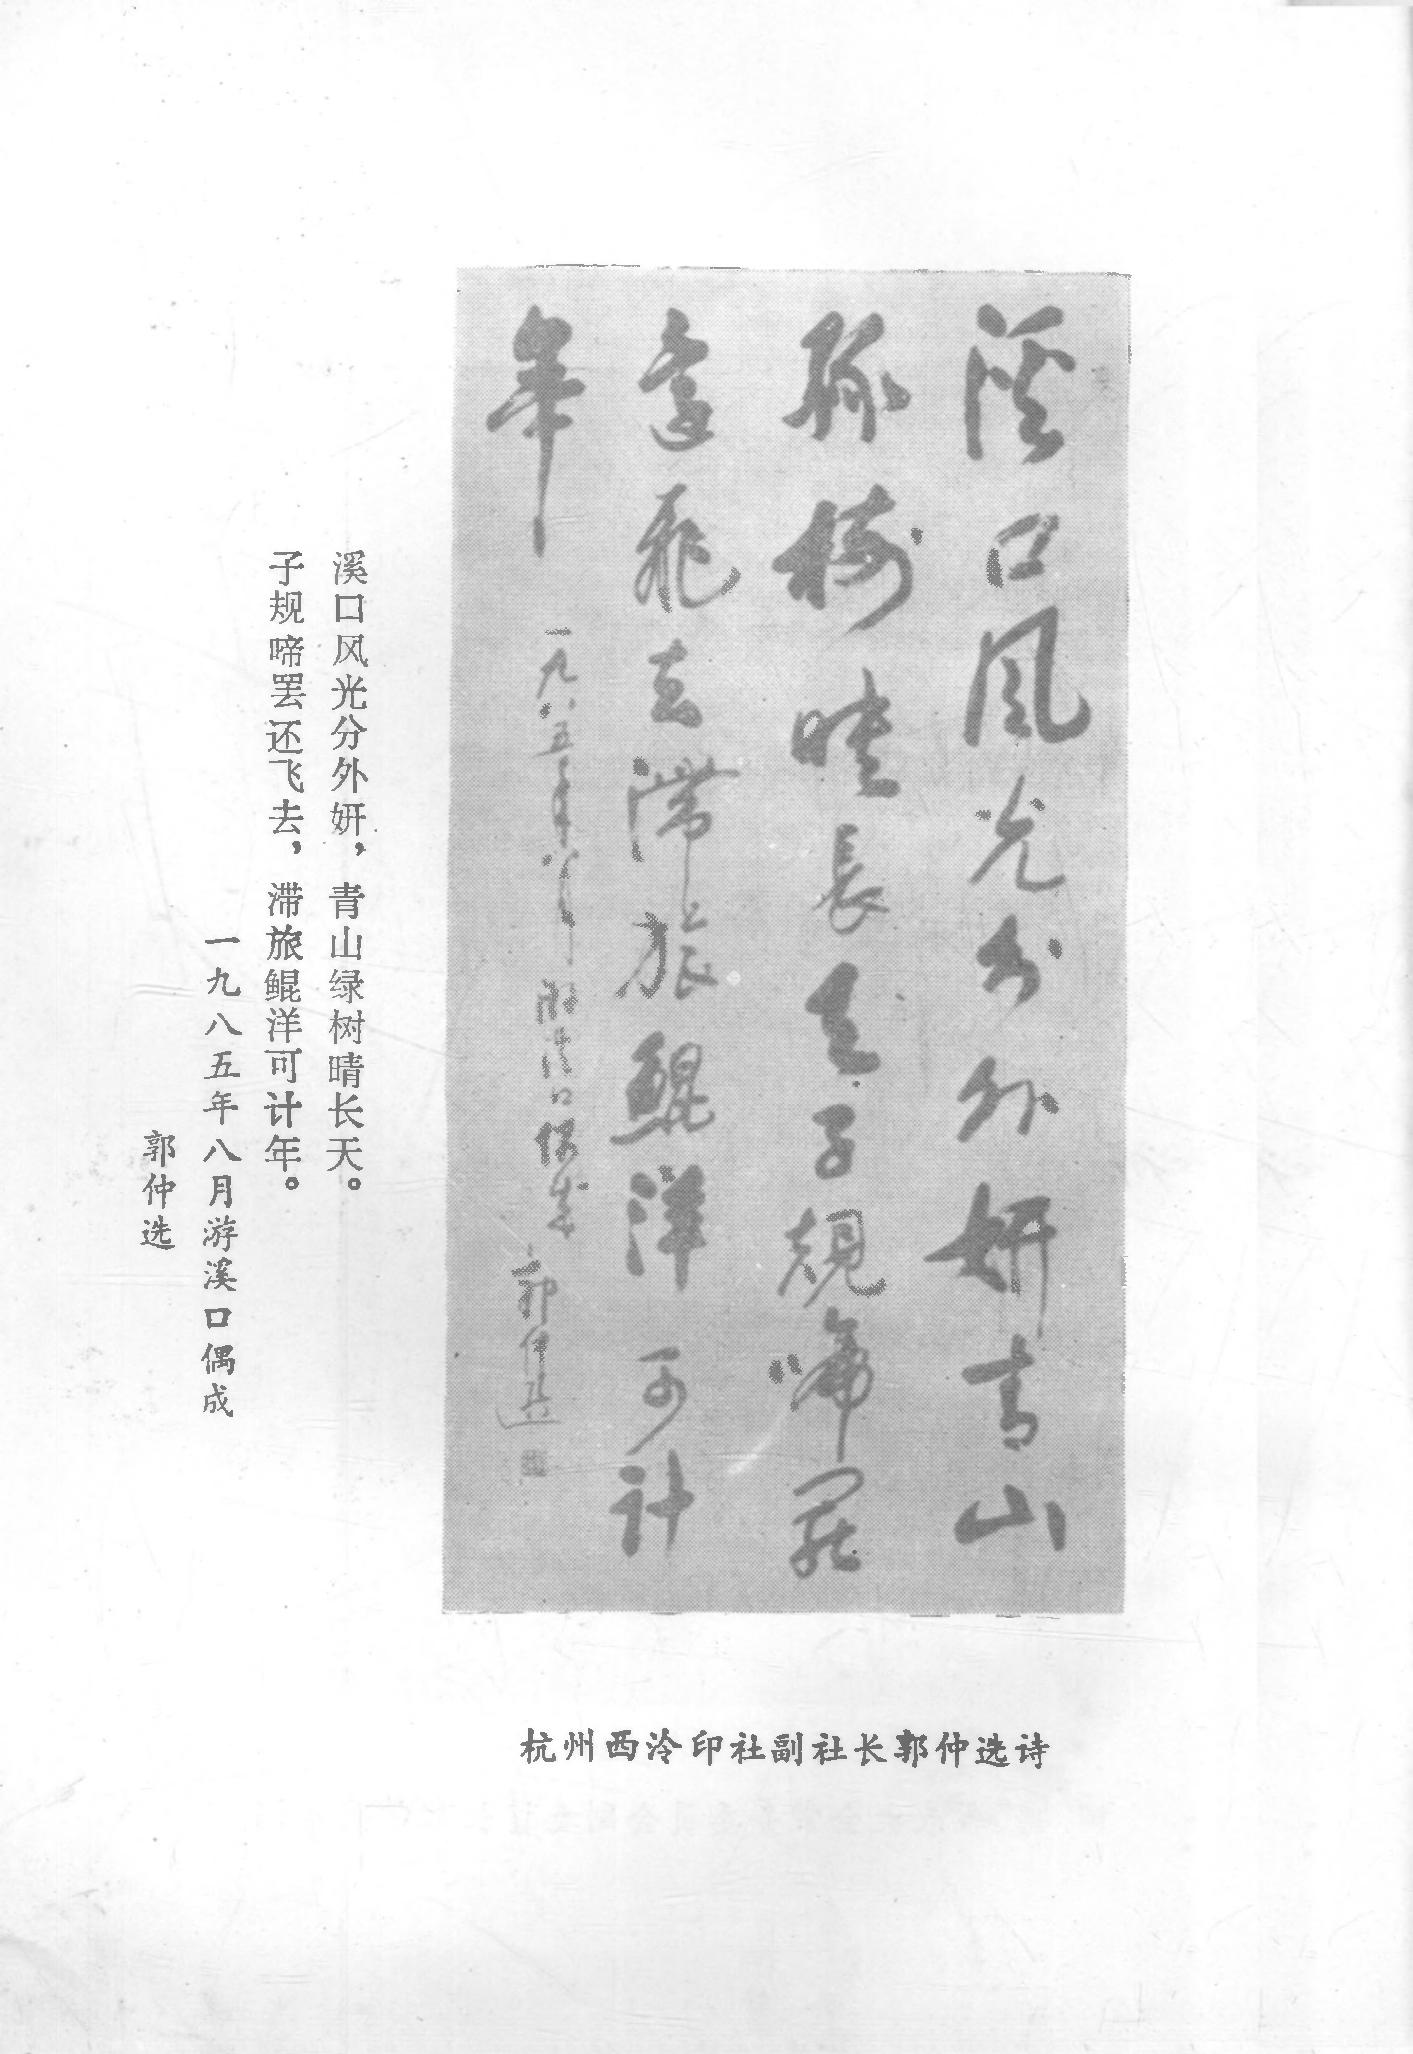 溪口风光分外妍青山
绿樹晴長天子規啼罷
還飛去滞旅鲲洋可計
年
一九八五年八月游溪口偶成 郭仲选
溪口风光分外妍，青山绿树晴长天。
子规啼罢还飞去，滞旅鲲洋可计年。
一九八五年八月游溪口偶成
郭仲选
杭州西泠印社副社长郭仲选诗